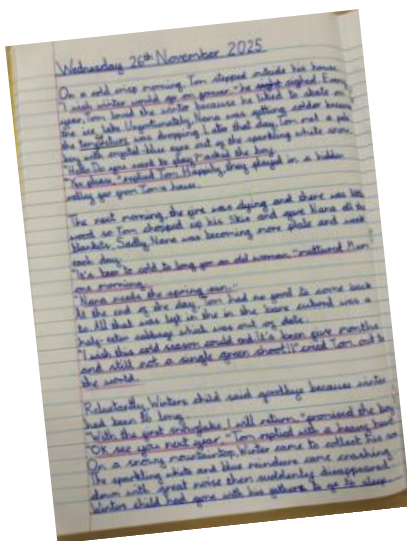 Wednesday 26th November 2025
On a cold crisp morning, Tom stepped outside his house.
"I wish winter would go on forever." he sighed. Every
year, Tom loved the winter because he liked to skate on
the icy lake. Unfortunately, Nana was getting colder because
the temperature was dropping. Later that day, Tom met a pale
boy with crystal blue eyes out of the sparkling white snow.
"Hello. Do you want to play?" asked the boy.
"Yes please." replied Tom. Happily, they played in a hidden
valley far from Tom's house.
The next morning, the fire was dying and there was little
wood so Tom chopped up his skis and gave Nana all the
blankets. Sadly, Nana was becoming more pale and weak
each day.
"It's been to cold to long for an old woman." muttered Mum
one morning.
"Nana needs the spring sun."
At the end of the day, Tom had no food to come back
to. All that was left in the in the bare cupboard was a
half eaten cabbage which was out of date.
"I wish this cold season could end it's been five months
and still not a single green shoot!!" cried Tom out to
the world.
Reluctantly, Winters child said goodbye because winter
had been to long.
"With the first snowflake, I will return." promised the boy.
"OK see you next year." Tom replied with a heavy heart.
On a snowy mountaintop, Winter came to collect his son.
The sparkling white and blue reindeers came crashing
down with great noise then suddenly disappeared.
Winters child had gone with his father to go to sleep